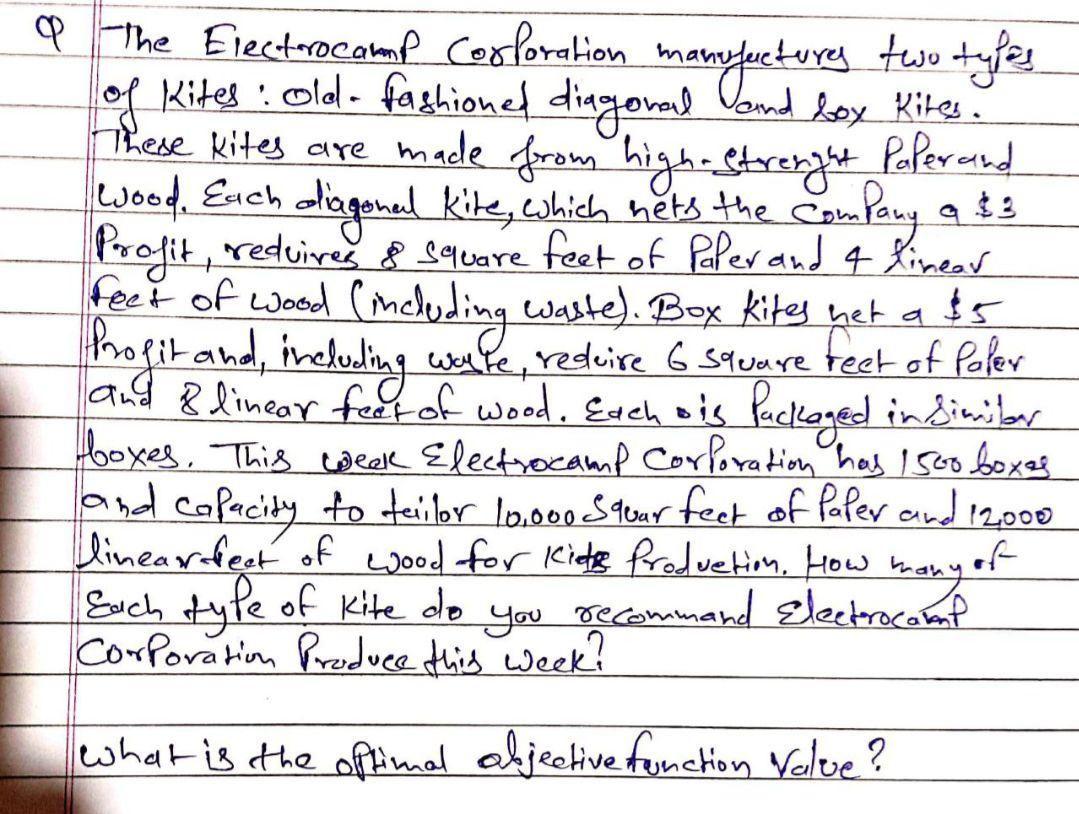 Q The Electrocamp Corporation manufactures two types
of Kites : old - fashioned diagonal and box Kites.
These kites are made from high-strenght Paper and
wood. Each diagonal kite, which nets the Company a $3
Profit, requires 8 square feet of Paper and 4 linear
feet of wood (including waste). Box kites net a $5
Profit and, including waste, require 6 square feet of Paper
and 8 linear feet of wood. Each is Packaged in similar
boxes. This week Electrocamp Corporation has 1500 boxes
and capacity to teilor 10,000 Squar feet of Paper and 12,000
linear feet of wood for kite Production. How many of
Each type of kite do you recommand Electrocamp
Corporation Produce this week?
what is the optimal objective function Value?